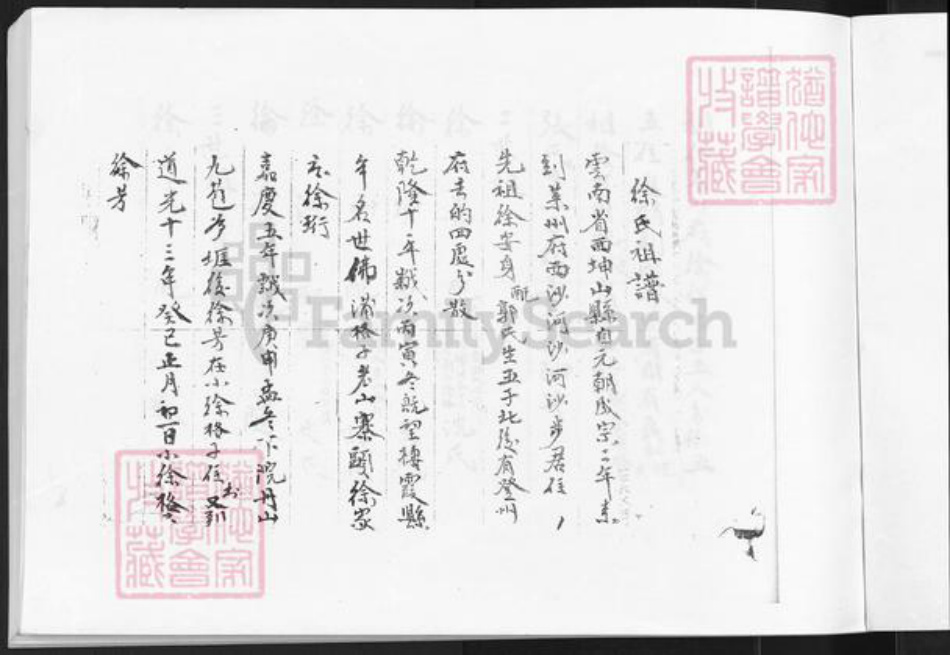 徐氏祖譜
雲南省西坤山縣自元朝成宗二年来
到莱州府西沙河沙河沙步君住
先祖徐安身配郭氏生五子北後有登州
府去的四處分散
乾隆十年歲次丙寅冬既望棲霞縣
年名世佛浦格子老山寨頭徐家
徐珩
嘉慶五年歲次庚申孟冬下院丹山
後徐芳在小徐格子住又到
道光十三年癸巳正月初一日小徐格
徐芳
猶他家譜學會收藏
猶他家譜學會收藏
FamilySearch